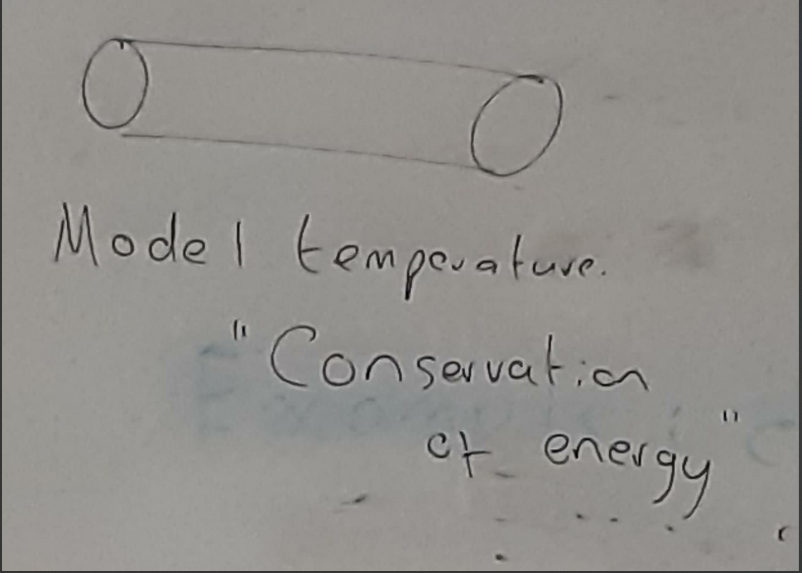 Model temperature.
"Conservation
of energy"